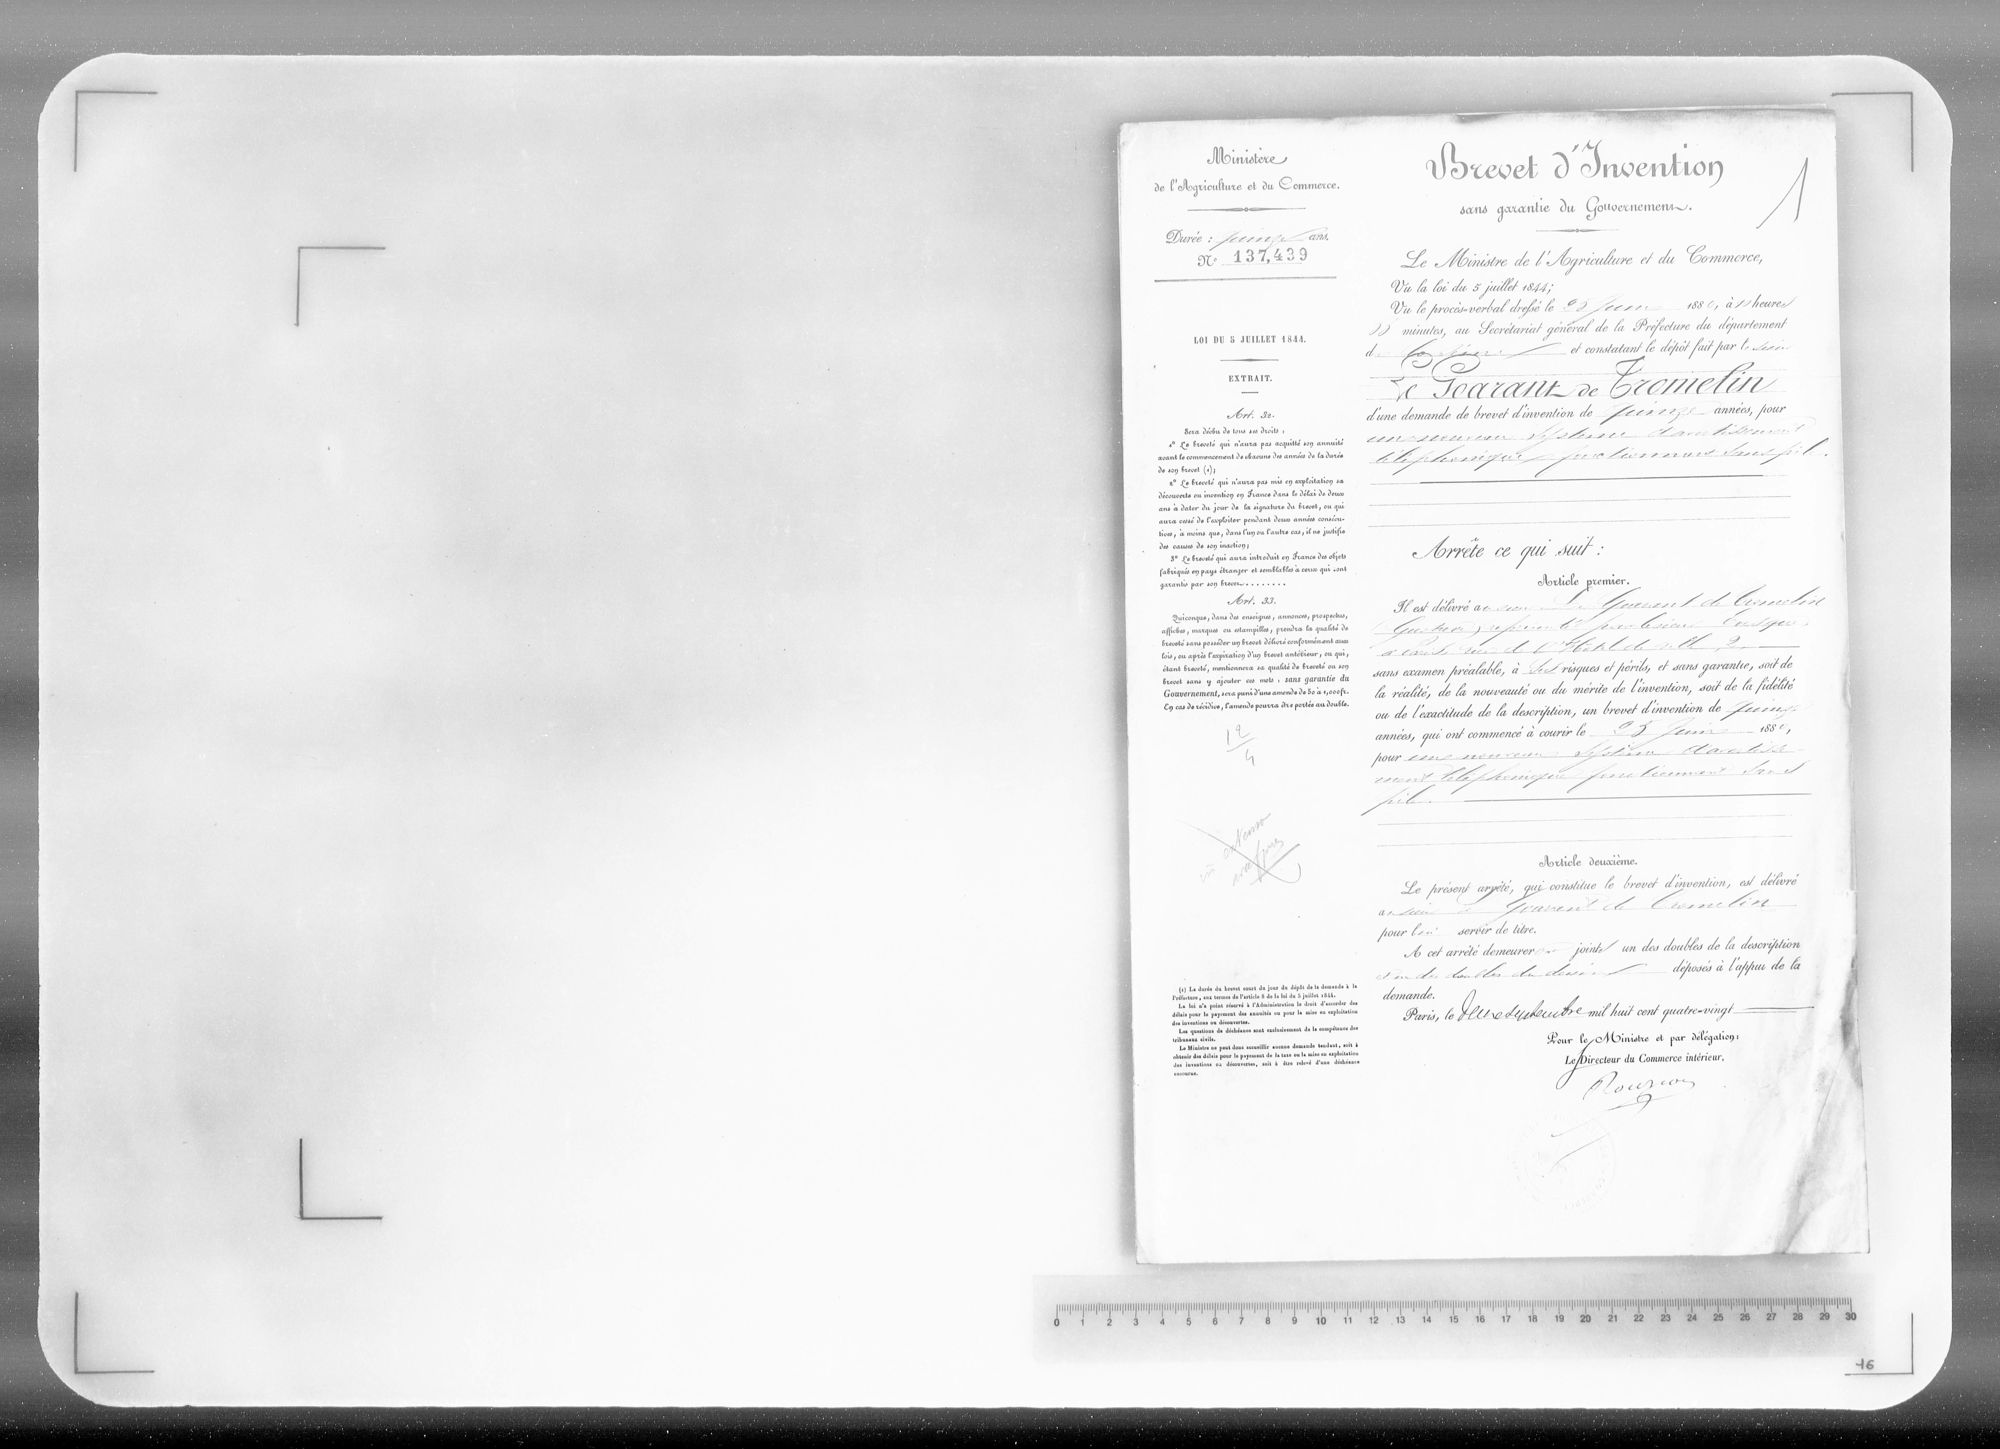 Ministère
de l'Agriculture et du Commerce.
Durée : quinze ans.
N° 137,439
LOI DU 5 JUILLET 1844.
EXTRAIT.
Art. 32.
Sera déchu de tous ses droits :
1° Le breveté qui n'aura pas acquitté son annuité
avant le commencement de chacune des années de la durée
de son brevet (1);
2° Le breveté qui n'aura pas mis en exploitation sa
découverte ou invention en France dans le délai de deux
ans à dater du jour de la signature du brevet, ou qui
aura cessé de l'exploiter pendant deux années consécu-
tives, à moins que, dans l'un ou l'autre cas, il ne justifie
des causes de son inaction;
3° Le breveté qui aura introduit en France des objets
fabriqués en pays étranger et semblables à ceux qui sont
garantis par son brevet........
Art. 33.
Quiconque, dans des enseignes, annonces, prospectus,
affiches, marques ou estampilles, prendra la qualité de
breveté sans posséder un brevet délivré conformément aux
lois, ou après l'expiration d'un brevet antérieur, ou qui,
étant breveté, mentionnera sa qualité de breveté ou son
brevet sans y ajouter ces mots : sans garantie du
Gouvernement, sera puni d'une amende de 50 à 1,000 fr.
En cas de récidive, l'amende pourra être portée au double.
12
4
in extenso
(1) La durée du brevet court du jour du dépôt de la demande à la
Préfecture, aux termes de l'article 8 de la loi du 5 juillet 1844.
La loi n'a point réservé à l'Administration le droit d'accorder des
délais pour le payement des annuités ou pour la mise en exploitation
des inventions ou découvertes.
Les questions de déchéance sont exclusivement de la compétence des
tribunaux civils.
Le Ministre ne peut donc accueillir aucune demande tendant, soit à
obtenir des délais pour le payement de la taxe ou la mise en exploitation
des inventions ou découvertes, soit à être relevé d'une déchéance
encourue.
Brevet d'Invention
1
sans garantie du Gouvernement.
Le Ministre de l'Agriculture et du Commerce,
Vu la loi du 5 juillet 1844;
Vu le procès-verbal dressé le 25 Juin 1880, à heures
minutes, au Secrétariat général de la Préfecture du département
d et constatant le dépôt fait par le sieur
Le Goarant de Tromelin
d'une demande de brevet d'invention de quinze années, pour
un nouveau système d'avertissement
téléphonique fonctionnant sans pile.
Arrête ce qui suit :
Article premier.
Il est délivré au sieur Le Goarant de Tromelin
(Gustave), représenté par le sieur
à Paris rue de l'Hôtel de ville, 2
sans examen préalable, à ses risques et périls, et sans garantie, soit de
la réalité, de la nouveauté ou du mérite de l'invention, soit de la fidélité
ou de l'exactitude de la description, un brevet d'invention de quinze
années, qui ont commencé à courir le 25 Juin 1880,
pour un nouveau système d'avertisse-
ment téléphonique fonctionnant sans
pile.
Article deuxième.
Le présent arrêté, qui constitue le brevet d'invention, est délivré
au sieur Le Goarant de Tromelin
pour lui servir de titre.
A cet arrêté demeureront joints un des doubles de la description
et un des doubles du dessin déposés à l'appui de la
demande.
Paris, le deux septembre mil huit cent quatre-vingt
Pour le Ministre et par délégation:
Le Directeur du Commerce intérieur.
0 1 2 3 4 5 6 7 8 9 10 11 12 13 14 15 16 17 18 19 20 21 22 23 24 25 26 27 28 29 30
16